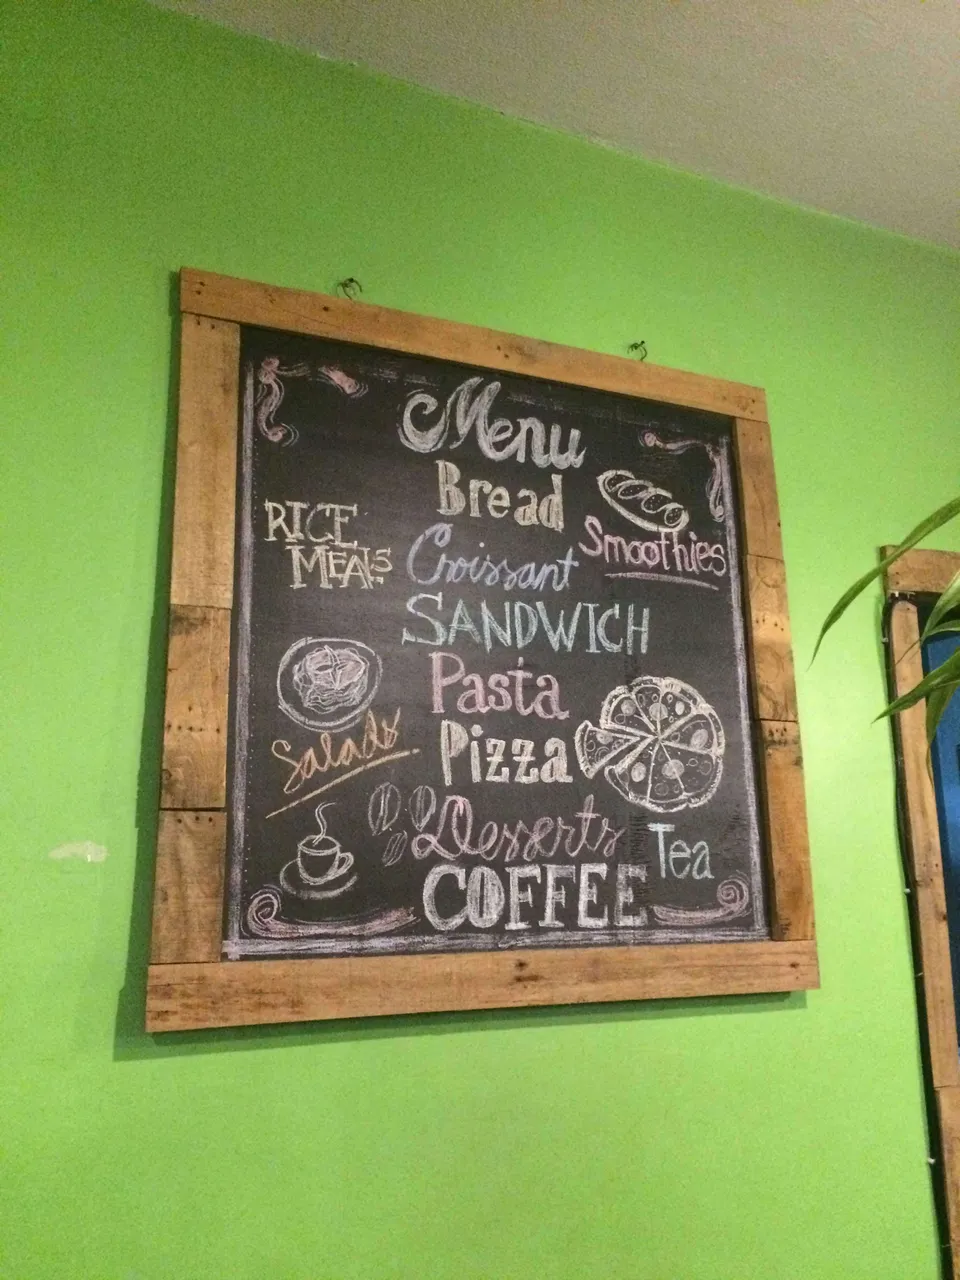 Menu
Bread
RICE
MEALS
Croissant
Smoothies
SANDWICH
Pasta
Pizza
Salads
Desserts
Tea
COFFEE